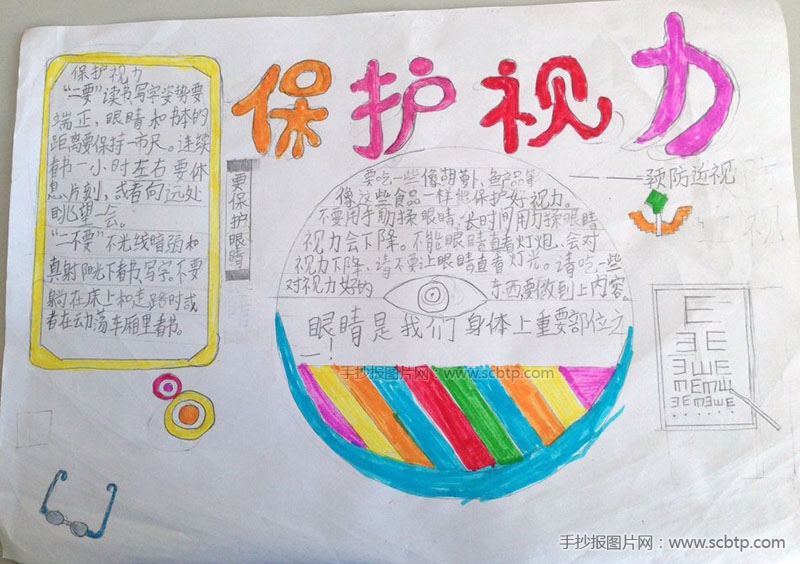 保护视力
——预防近视
保护视力
“一要”读书写字姿势要
端正，眼睛和书本的
距离要保持一市尺。连续
看书一小时左右要休
息片刻，或者向远处
眺望一会。
“二不要”不光线暗弱和
真射阳光下看书写字。不要
躺在床上和走路时或
者在动荡车厢里看书。
要保护眼睛
要吃一些像胡萝卜、鱼
像这些食品一样能保护好视力。
不要用手前揉眼睛，长时间用力揉眼睛
视力会下降。不能眼睛直看灯炮、会对
视力下降，请不要让眼睛直看灯光。请吃一些
对视力好的 东西要做到上内容。
眼睛是我们身体上重要部位之
一！
手抄报图片网：www.scbtp.com
E
ƎE
手抄报图片网：www.scbtp.com